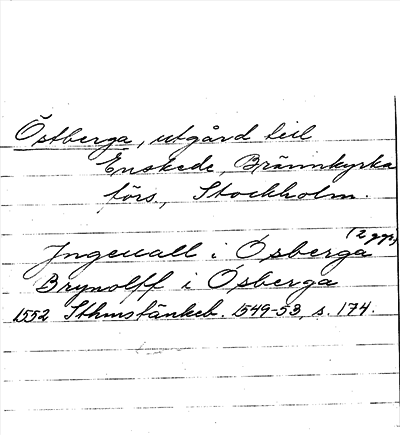 Östberga, utgård till
Enskede, Brännkyrka
förs., Stockholm.
(2 ggr)
Jngeuall i Ósberga
Brynolff i Ósberga
1552 Sthmstänkeb. 1549-53, s. 174.